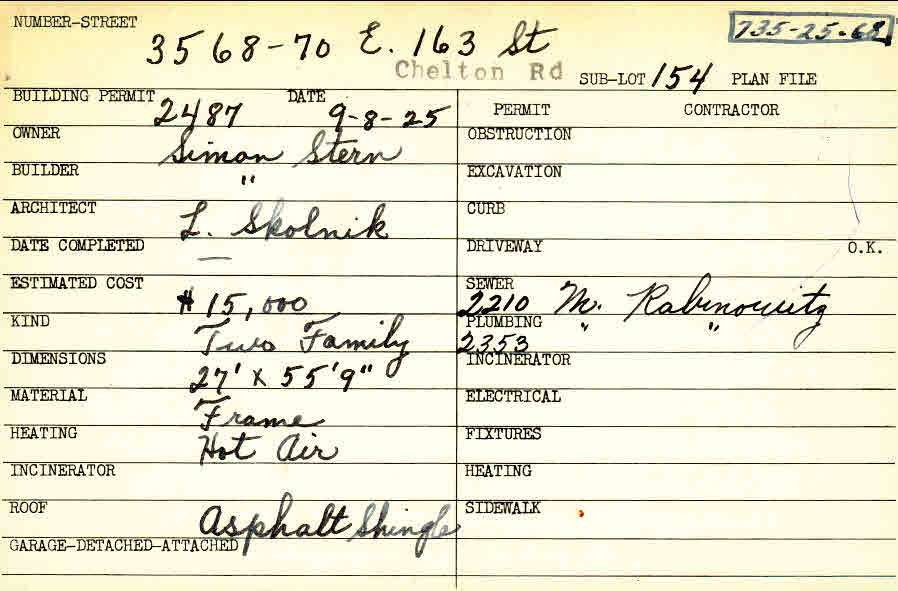 NUMBER-STREET 3568-70 E. 163 St 735-25-68
Chelton Rd SUB-LOT 154 PLAN FILE
BUILDING PERMIT 2487 DATE 9-8-25 PERMIT CONTRACTOR
OWNER Simon Stern OBSTRUCTION
BUILDER " EXCAVATION
ARCHITECT L. Skolnik CURB
DATE COMPLETED — DRIVEWAY O.K.
ESTIMATED COST $15,000 SEWER 2210 M. Rabinowitz
KIND Two Family PLUMBING 2353 " "
DIMENSIONS 27' x 55'9" INCINERATOR
MATERIAL Frame ELECTRICAL
HEATING Hot Air FIXTURES
INCINERATOR HEATING
ROOF Asphalt Shingle SIDEWALK
GARAGE-DETACHED-ATTACHED